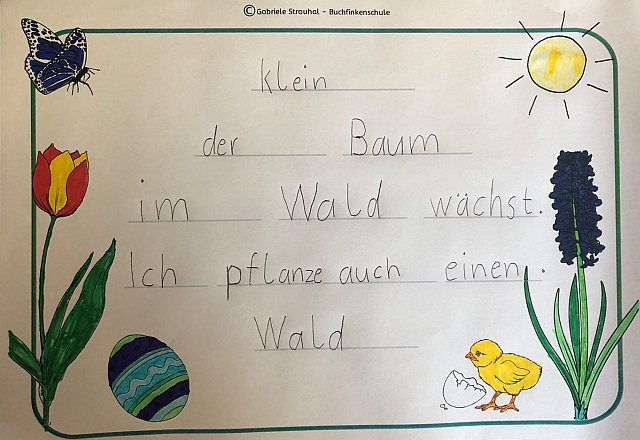 ©Gabriele Strouhal - Buchfinkenschule
klein
der Baum
im Wald wächst.
Ich pflanze auch einen.
Wald